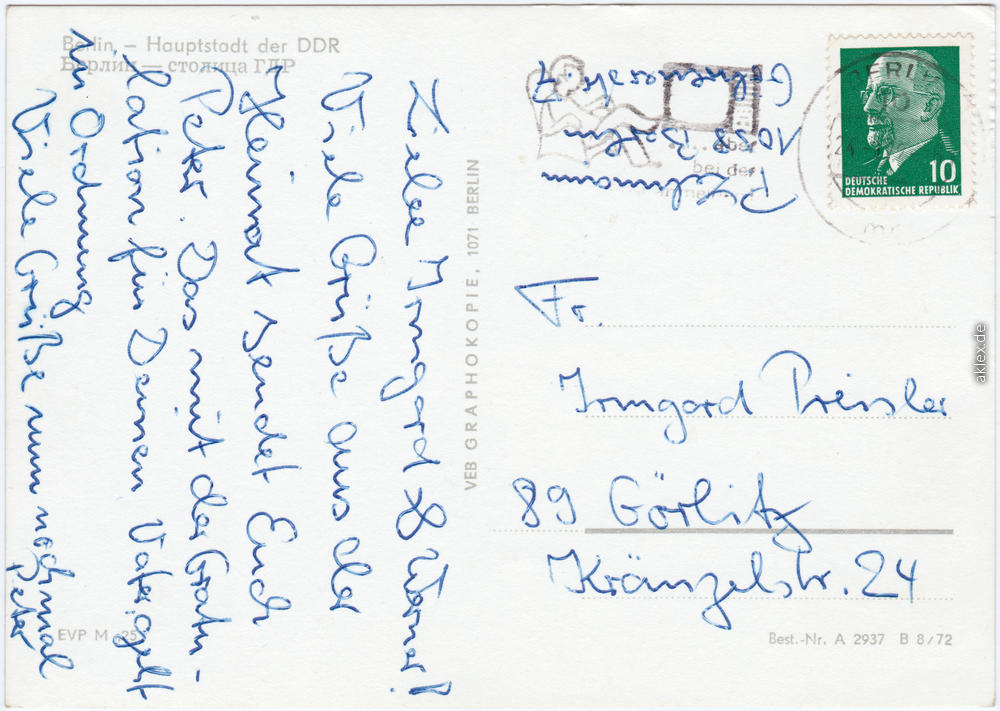 Berlin – Hauptstadt der DDR
Берлин — столица ГДР
Liebe Irmgard & Werner!
Viele Grüße aus der
Heimat sendet Euch
Peter. Das mit der Gratu-
lation für Deinen Vater geht
in Ordnung
Viele Grüße nun nochmal
Peter
EVP M -,25
VEB GRAPHOKOPIE, 1071 BERLIN
1055 Berlin
... aber
bei der
BERLIN
10
DEUTSCHE
DEMOKRATISCHE REPUBLIK
Fr.
Irmgard Preisler
89 Görlitz
Kränzelstr. 24
Best.-Nr. A 2937 B 8/72
aklex.de